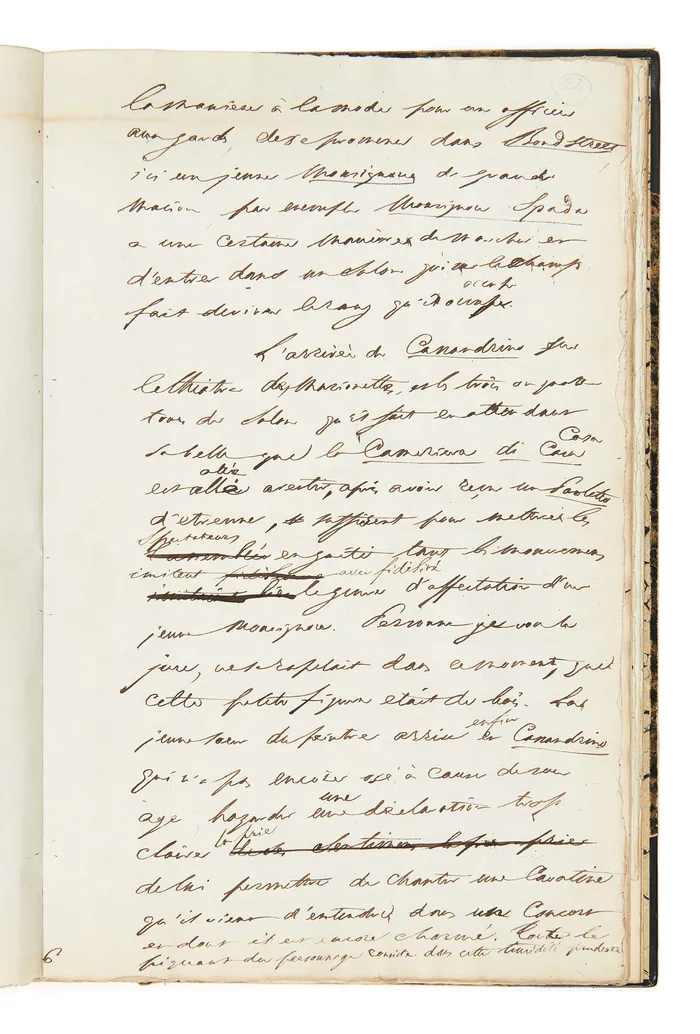 22
la manière à la mode pour un officier
aux gardes de se promener dans Bond Street,
ici un jeune Monsignore de grande
maison par exemple Monsignor Spada
a une certaine manière de marcher et
d'entrer dans un salon qui sur le champ
occupe
fait deviner le rang qu'il occupe.
L'arrivée de Cassandrino sur
le théâtre des Marionettes, et les trois ou quatre
tours de salon qu'il fait en attendant
Casa
sa belle que la Cameriera di Casa
allée
est allée avertir, après avoir reçu un Paoletto
d'etrenne, suffisent pour mettre les
Spectateurs
l'assemblée en gaité tant les mouvemens
imitent avec fidélité
le genre d'affectation d'un
jeune Monsignore. Personne je vous le
jure, ne se rapelait dans ce moment, que
cette petite figure etait de bois. La
enfin
jeune sœur du peintre arrive et Cassandrino
qui n'a pas encore osé à cause de son
une
age hazarder une déclaration trop
la prie
claire de ses sentimens prier
de lui permettre de chanter une Cavatine
qu'il vient d'entendre dans un Concert
et dont il est encore charmé. Toute le
piquant du personnage consiste dans cette timidité prudente
6